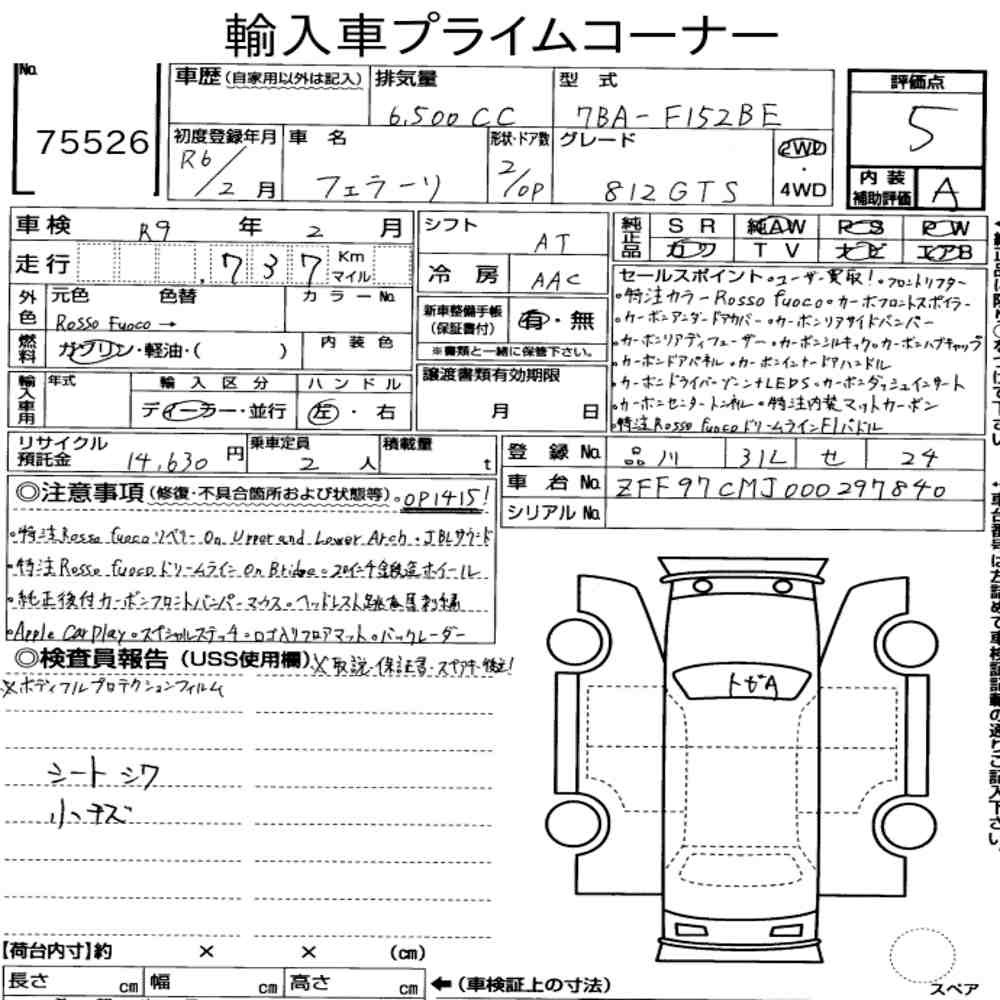 輸入車プライムコーナー
No.
75526
車歴(自家用以外は記入)
排気量
6,500CC
型式
7BA-F152BE
評価点
5
初度登録年月
R6/2月
車名
フェラーリ
形状・ドア数
2/OP
グレード
812GTS
2WD
・
4WD
内装
補助評価
A
車検 R9年2月
走行 .737 Km マイル
外色
元色 色替
カラーNo.
Rosso Fuoco→
燃料
ガソリン・軽油・( )
内装色
輸入車用
年式
輸入区分
ディーラー・並行
ハンドル
左・右
リサイクル預託金
14,630円
乗車定員
2人
積載量
t
シフト
AT
冷房
AAC
新車整備手帳
(保証書付)
有・無
※書類と一緒に保管下さい。
譲渡書類有効期限
月 日
純正品
SR 純AW PS PW
カワ TV ナビ エアB
セールスポイント。ユーザー買取!。フロントリフター
。特注カラーRosso fuoco。カーボフロントスポイラー
。カーボンアンダードアカバー。カーボンリアサイドバンパー
。カーボンリアディフューザー。カーボンシルキック。カーボンハブキャップ
。カーボンドアパネル。カーボンインナードアハンドル
。カーボンドライバーゾーン+LEDS。カーボンダッシュインサート
。カーボンセンタートンネル。特注内装マットカーボン
。特注Rosso fuocoドリームラインF1パドル
登録No. 品川 31L せ 24
車台No. ZFF97CMJ000297840
シリアルNo.
◎注意事項(修復・不具合箇所および状態等)。OP1415!
。特注Rosso fuocoリベリーOn Upper and Lower Arch。JBLサウンド
。特注Rosso fuocoドリームラインon Bridge。20インチ鍛造ホイール
。純正後付カーボンフロントバンパーマウス。ヘッドレスト跳馬刺繍
。Apple CarPlay。スペシャルステッチ。ロゴ入りフロアマット。バックレーダー
◎検査員報告(USS使用欄)※取説・保証書・スペアキー積込!
※ボディフルプロテクションフィルム
シートシワ
小キズ
トビA
【荷台内寸】約 × × (cm)
長さ cm 幅 cm 高さ cm
←(車検証上の寸法)
スペア